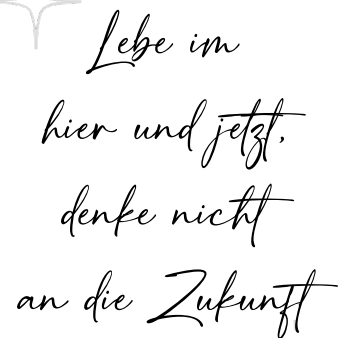 Lebe im
hier und jetzt,
denke nicht
an die Zukunft